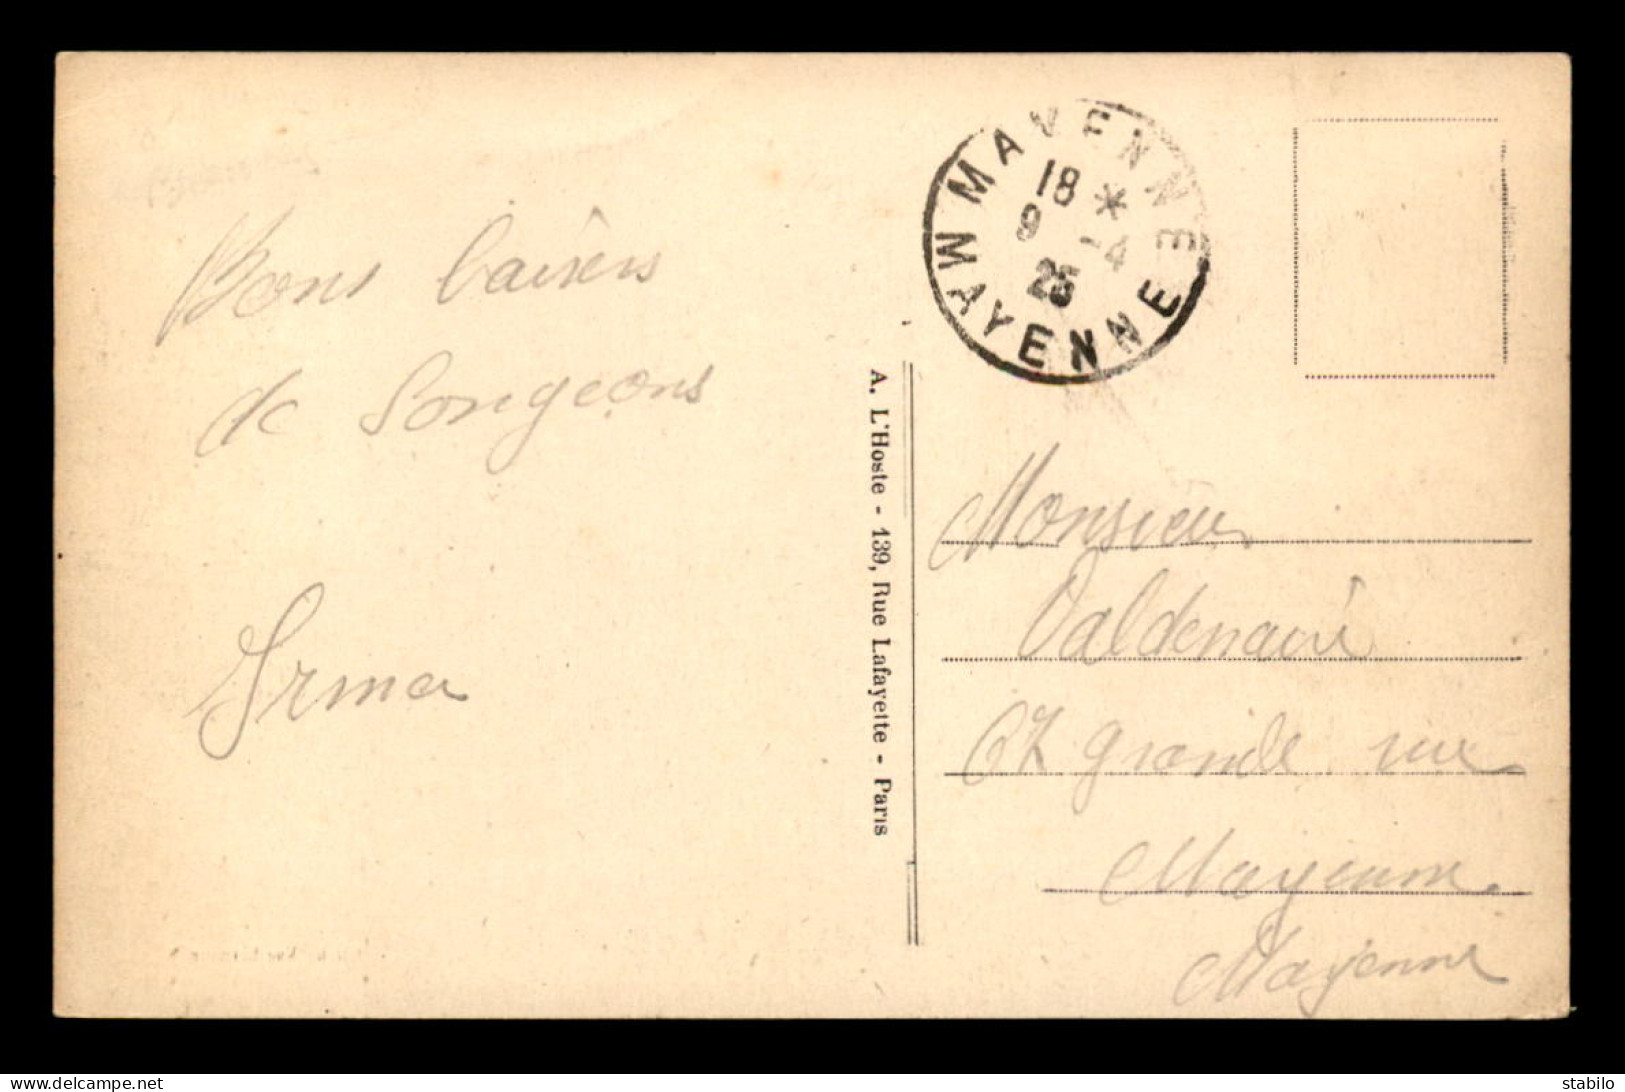 Bons baisers
de Songeons
Irma
A. L'Hoste - 139, Rue Lafayette - Paris
MAYENNE
18 *
9 -4
25
MAYENNE
Monsieur
Valdenaire
67 grande rue
Mayenne
Mayenne
stabilo